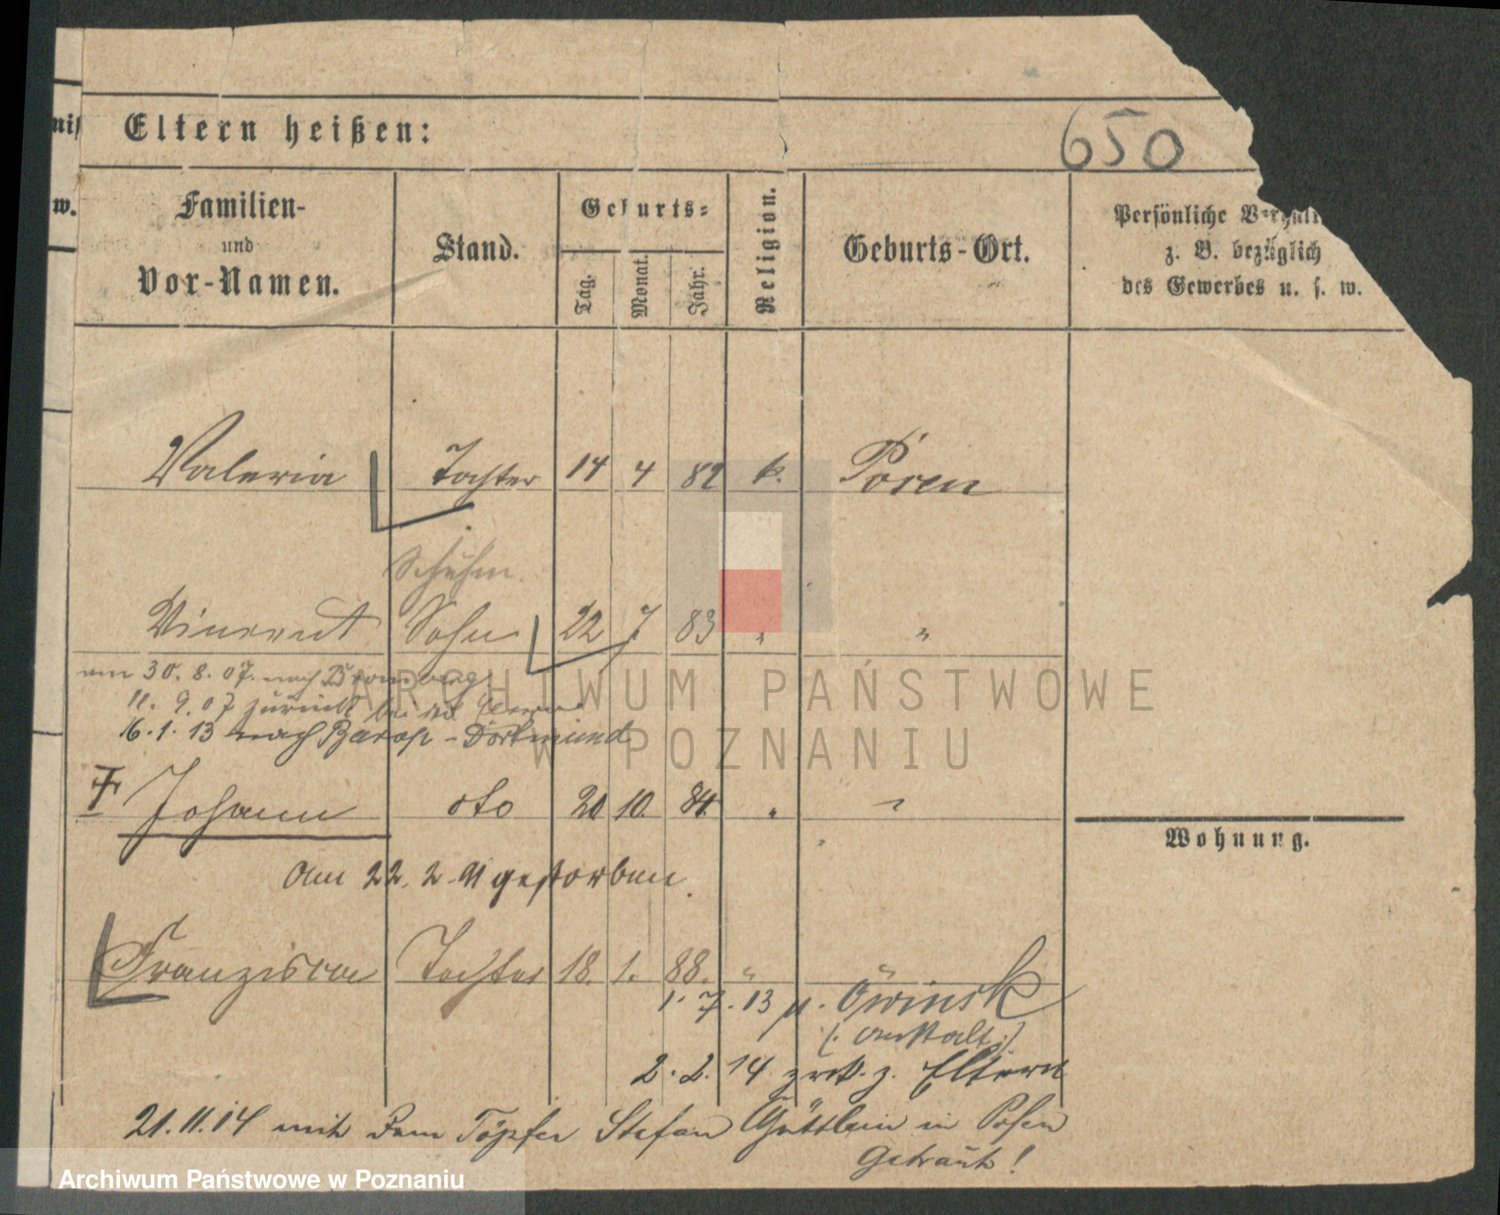 Eltern heißen:
650
w.
Familien-
und
Vor-Namen.
Stand.
Geburts-
Tag.
Monat.
Jahr.
Religion.
Geburts-Ort.
Persönliche
z. B. bezüglich
des Gewerbes u. s. w.
Valeria Tochter 14 4 82 k. Posen
Schuhm.
Vincent Sohn 22 7 83 " "
am 30. 8. 07. nach Bromberg
11. 9. 07 zurück
16. 1. 13 nach Barop - Dortmund
ARCHIWUM PAŃSTWOWE
W POZNANIU
Johann dto 20 10. 84. " "
Wohnung.
am 22. 2. 91 gestorben.
Franziska Tochter 18. 1. 88. " "
1. 7. 13 n. Öwinsk
(: Anstalt :)
2. 2. 14 zrck. z. Eltern
21. 11. 14 mit dem Töpfer Stefan in Posen
Getraut!
Archiwum Państwowe w Poznaniu